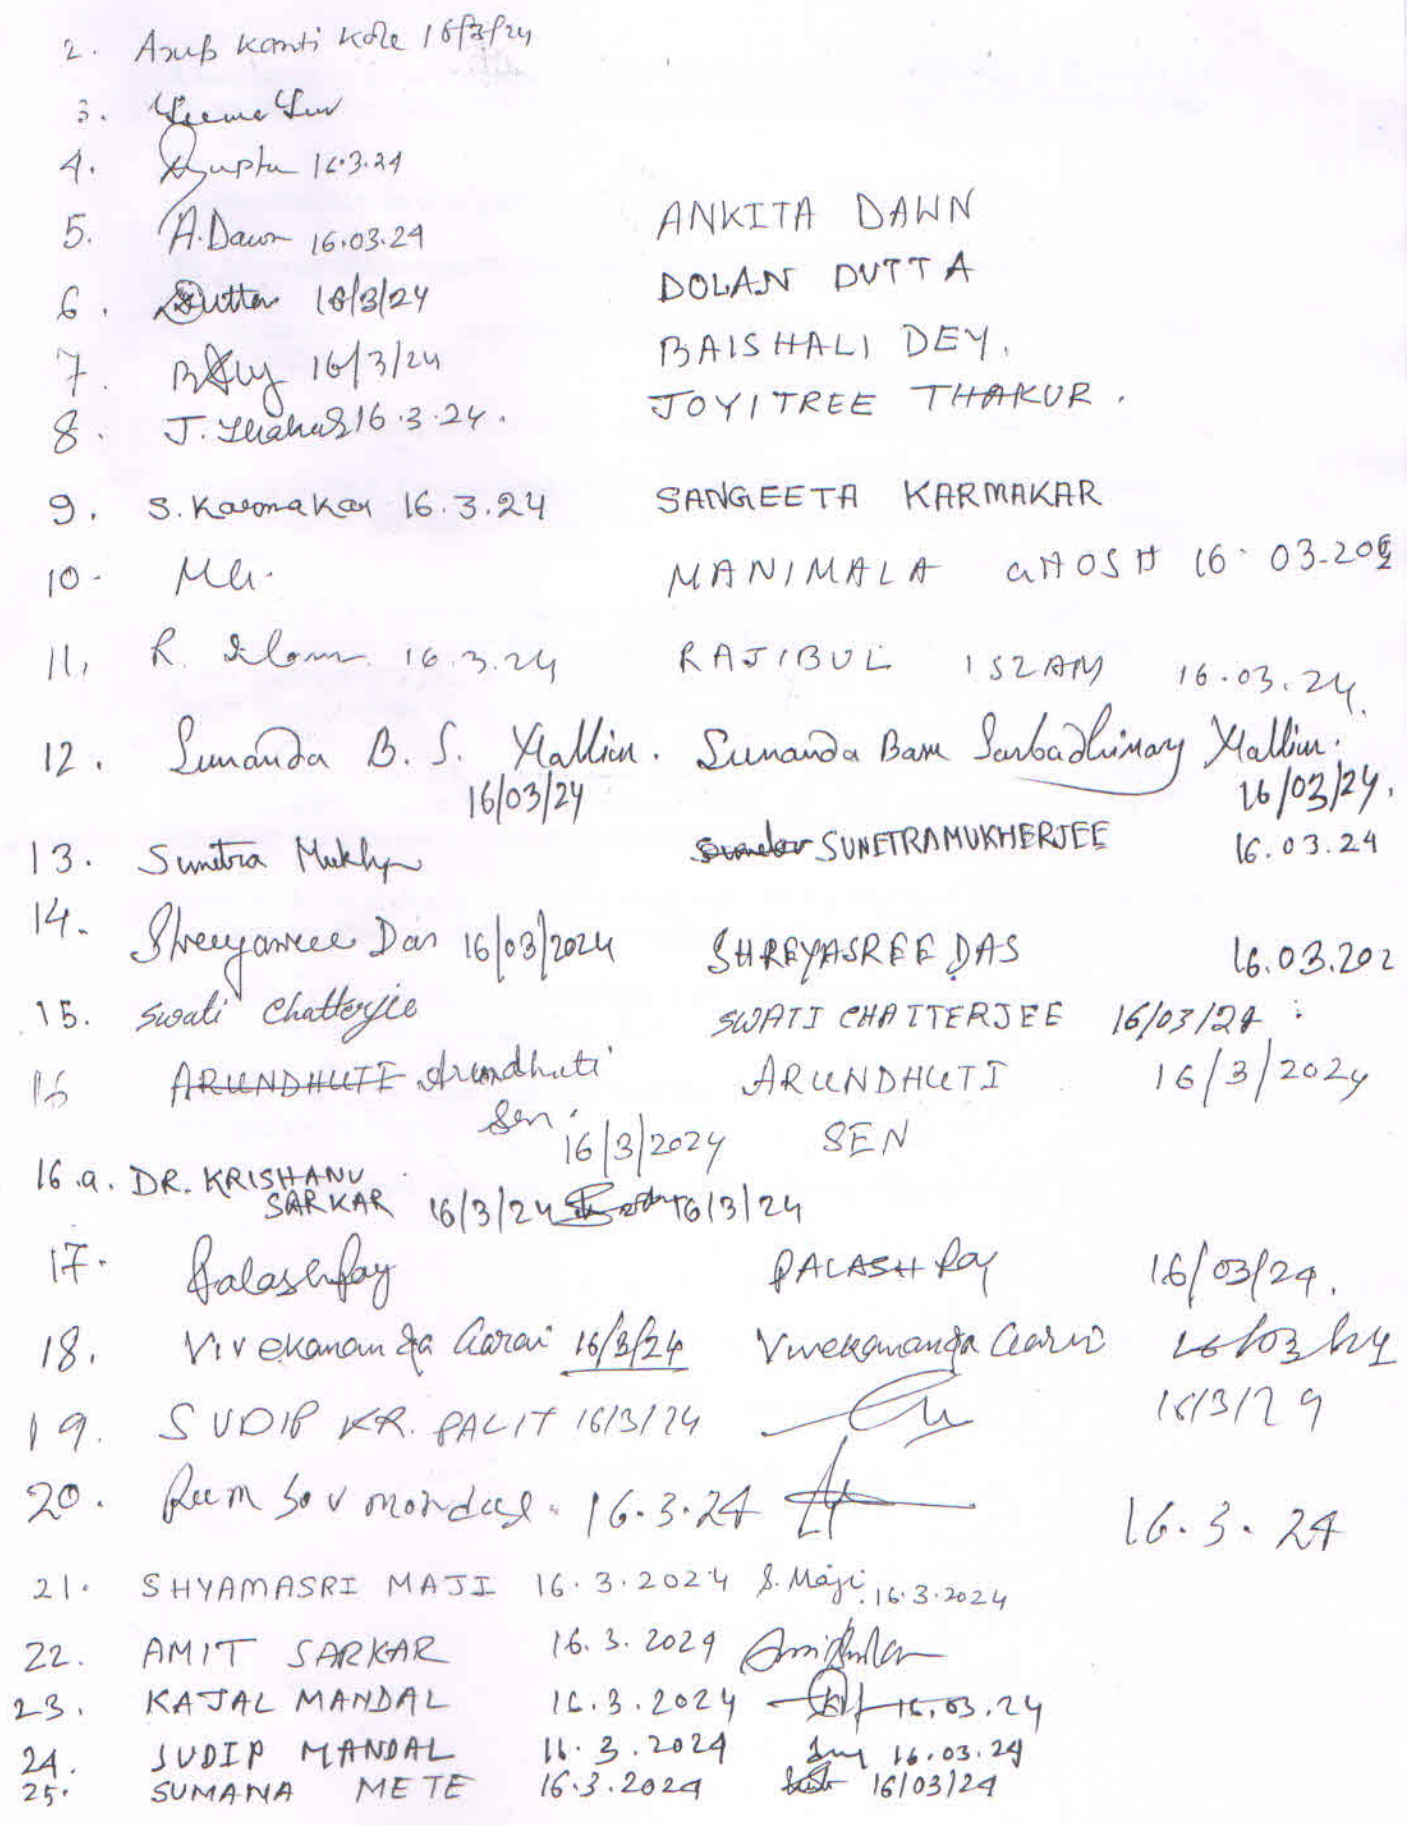 2. Arup Kanti Kole 16/3/24
3.
4. Gupta 16.3.24
5. A. Dawn 16.03.24 ANKITA DAWN
6. Dutta 16/3/24 DOLAN DUTTA
7. B Dey 16/3/24 BAISHALI DEY.
8. J. Thakur 16.3.24. JOYITREE THAKUR.
9. S. Karmakar 16.3.24 SANGEETA KARMAKAR
10. MANIMALA GHOSH 16.03.202
11. R. Islam 16.3.24 RAJIBUL ISLAM 16.03.24.
12. Sunanda B. S. Mallick. Sunanda Basu Sarbadhikary Mallick.
16/03/24 16/03/24.
13. Sunetra Mukherjee SUNETRA MUKHERJEE 16.03.24
14. Shreyasree Das 16/03/2024 SHREYASREE DAS 16.03.202
15. Swati Chatterjee SWATI CHATTERJEE 16/03/24
16 ARUNDHUTI Arundhuti ARUNDHUTI 16/3/2024
Sen. 16/3/2024 SEN
16.a. DR. KRISHANU
SARKAR 16/3/24 16/3/24
17. Palash Pay PALASH Pay 16/03/24.
18. Vivekananda Garai 16/3/24 Vivekananda Garai 16/03/24
19. SUDIP KR. PALIT 16/3/24 16/3/24
20. mondal. 16.3.24 16.3.24
21. SHYAMASRI MAJI 16.3.2024 S. Maji. 16.3.2024
22. AMIT SARKAR 16.3.2024 Amit Sarkar
23. KAJAL MANDAL 16.3.2024 16.03.24
24. SUDIP MANDAL 16.3.2024 16.03.24
25. SUMANA METE 16.3.2024 16/03/24